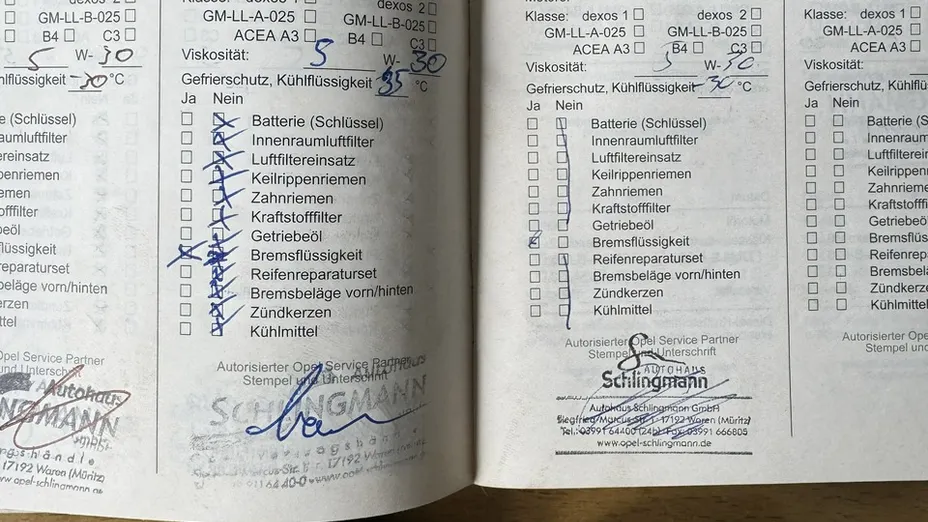 dexos 2
GM-LL-B-025
B4 C3
5 W-30
hlflüssigkeit -30 °C
e (Schlüssel)
raumluftfilter
ereinsatz
ppenriemen
emen
offfilter
eöl
flüssigkeit
reparaturset
beläge vorn/hinten
kerzen
ttel
Opel Service Partner
und Unterschrift
Autohaus
NGMANN
17192 Waren (Müritz)
www.opel-schlingmann.de
dexos 1 dexos 2
GM-LL-A-025 GM-LL-B-025
ACEA A3 B4 C3
Viskosität: 5 W-30
Gefrierschutz, Kühlflüssigkeit 35 °C
Ja Nein
Batterie (Schlüssel)
Innenraumluftfilter
Luftfiltereinsatz
Keilrippenriemen
Zahnriemen
Kraftstofffilter
Getriebeöl
Bremsflüssigkeit
Reifenreparaturset
Bremsbeläge vorn/hinten
Zündkerzen
Kühlmittel
Autorisierter Opel Service Partner
Stempel und Unterschrift
Autohaus
SCHLINGMANN
17192 Waren (Müritz)
www.opel-schlingmann.de
Klasse: dexos 1 dexos 2
GM-LL-A-025 GM-LL-B-025
ACEA A3 B4 C3
Viskosität: 5 W-30
Gefrierschutz, Kühlflüssigkeit 30 °C
Ja Nein
Batterie (Schlüssel)
Innenraumluftfilter
Luftfiltereinsatz
Keilrippenriemen
Zahnriemen
Kraftstofffilter
Getriebeöl
Bremsflüssigkeit
Reifenreparaturset
Bremsbeläge vorn/hinten
Zündkerzen
Kühlmittel
Autorisierter Opel Service Partner
Stempel und Unterschrift
AUTOHAUS
Schlingmann
Autohaus Schlingmann GmbH
Siegfried-Marcus-Str. 1 · 17192 Waren (Müritz)
Tel.: 03991 64400 (24h) · Fax: 03991 666805
www.opel-schlingmann.de
Klasse: dexos 1
GM-LL-A-025
ACEA A3
Viskosität:
Gefrierschutz, Kühlfl
Ja Nein
Batterie
Innenra
Luftfilter
Keilrippe
Zahnrieme
Kraftstofff
Getriebeöl
Bremsflüss
Reifenrepa
Bremsbelä
Zündkerze
Kühlmittel
Autorisierter Opel Se
Stempel und